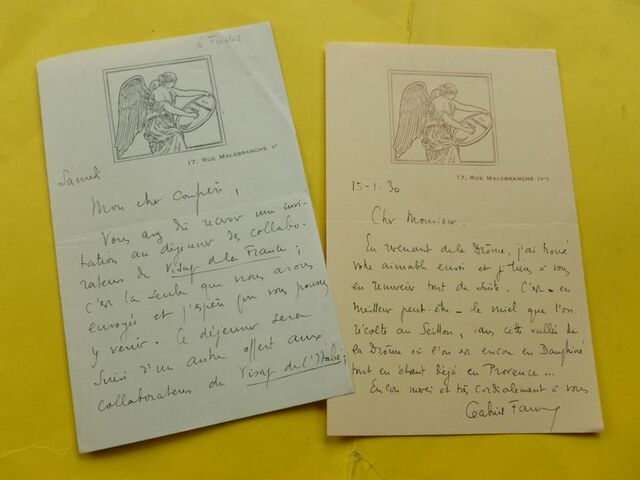 17, RUE MALEBRANCHE Vᵉ
Samedi
Mon cher confrère,
Vous avez dû recevoir une invi-
tation au déjeuner des collabo-
rateurs de Visage de la France ;
c'est la seule que nous avons
envoyée et j'espère que vous pourrez
y venir. Ce déjeuner sera
suivi d'un autre offert aux
collaborateurs du Visage de l'Italie ;
17, RUE MALEBRANCHE (Vᵉ)
15-1-30
Cher Monsieur.
En revenant de la Drôme, j'ai trouvé
votre aimable envoi et je tiens à vous
en remercier tout de suite. C'est - en
meilleur peut-être - le miel que l'on
récolte au Saillon, dans cette vallée de
la Drôme où l'on est encore en Dauphiné
tout en étant déjà en Provence...
Encore merci et très cordialement à vous
Gabriel Faure